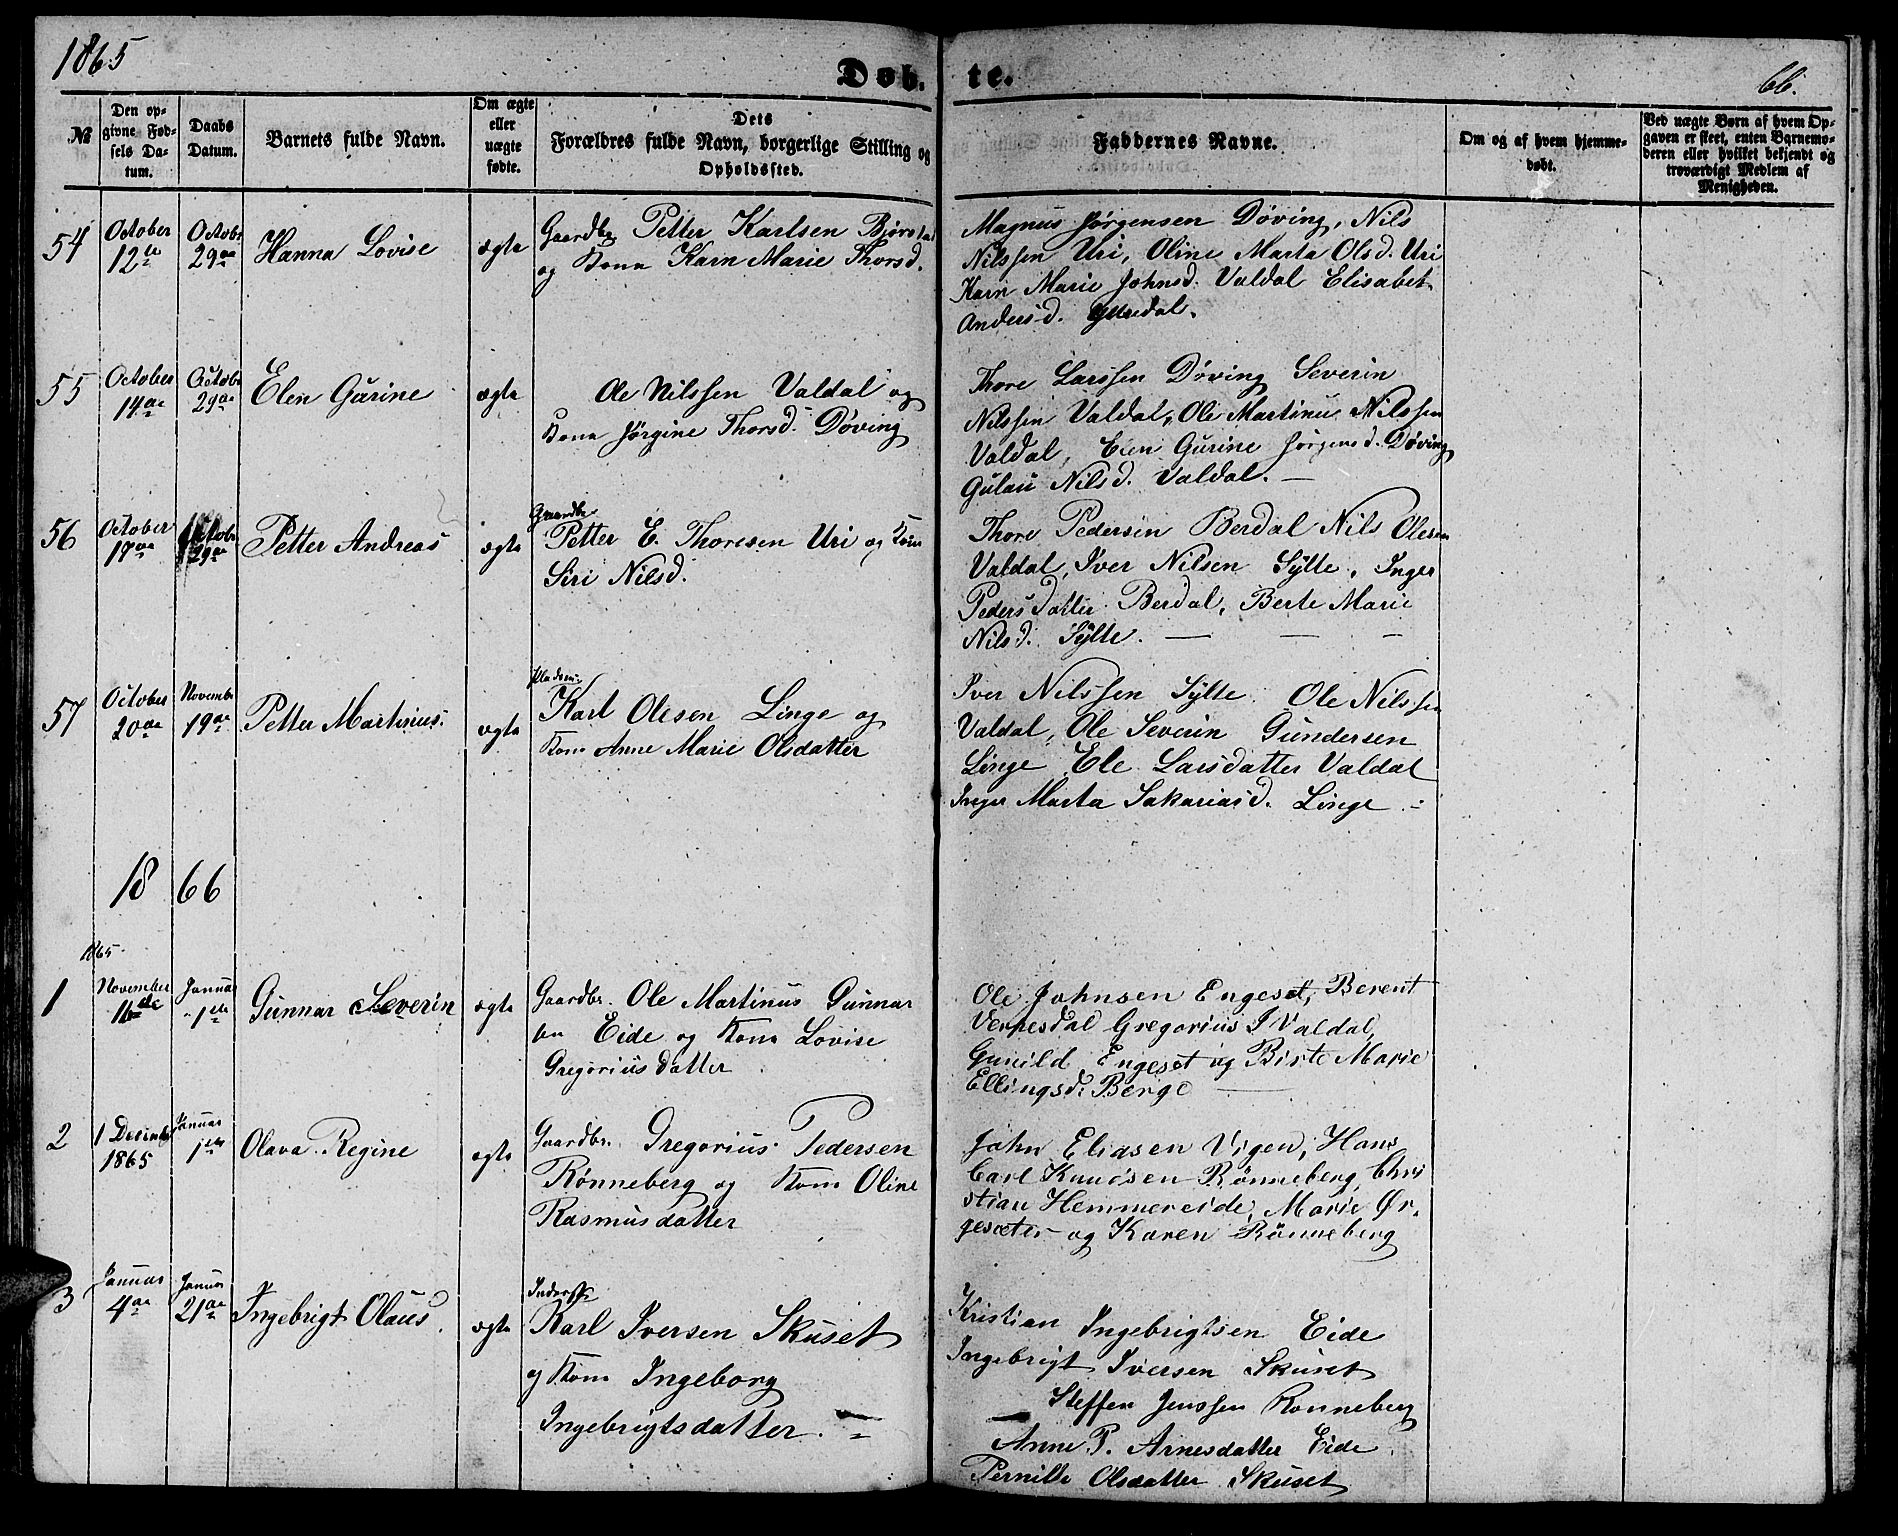 1865
Døb-
te.
66.
№
Den op-
givne Fød-
sels Da-
tum.
Daabs
Datum.
Barnets fulde Navn.
Om ægte
eller
uægte
fødte.
Dets
Forældres fulde Navn, borgerlige Stilling og
Opholdssted.
Faddernes Navne.
Om og af hvem hjemme-
døbt.
Ved uægte Børn af hvem Op-
gaven er skeet, enten Barnemo-
deren eller hvilket bekjendt og
troværdigt Medlem af
Menigheden.
54
October
12te
Octobr
29de
Hanna Lovise
ægte
Gaardbr. Petter Karlsen Bjørstad
og Kona Karn Marie Thorsd.
Magnus Jørgensen Døving, Nils
Nilssen Uri, Oline Marta Olsd. Uri
Karn Marie Johnsd. Valdal Elisabet
Andersd. Yttredal.
55
October
14de
Octobr
29de
Elen Gurine
ægte
Ole Nilssen Valdal og
Kona Jørgine Thorsd. Døving
Thore Larssen Døving Severin
Nilssen Valdal, Ole Martinus Nilssen
Valdal, Elen Gurine Jørgensd. Døving
Gulau Nilsd. Valdal. —
56
October
17de
Octobr
29de
Petter Andreas
ægte
Gaardbr
Petter E. Thoresen Uri og Kone
Siri Nilsd.
Thore Pedersen Berdal Nils Olesen
Valdal, Iver Nilsen Sylte, Inger
Pedersdatter Berdal, Berte Marie
Nilsd. Sylte. — — —
57
October
20de
Novembr
19de
Petter Martinus.
ægte
Pladsm.
Karl Olesen Linge og
Kone Anne Marie Olsdatter
Iver Nilssen Sylte Ole Nilssen
Valdal, Ole Severin Gundersen
Linge Ele Larsdatter Valdal
Inger Marta Sakariasd. Linge
1866
1865
1
November
16de
Januar
1ste
Gunnar Severin
ægte
Gaardbr. Ole Martinus Gunnar
sen Eide og Kone Lovise
Gregoriusdatter
Ole Johnsen Engeset, Berent
Vernesdal Gregorius J Valdal,
Gunild Engeset og Birte Marie
Ellingsd. Berge —
2
1 Decembr
1865
Januar
1ste
Olava Regine
ægte
Gaardbr. Gregorius Pedersen
Rønneberg og Kone Oline
Rasmusdatter
John Eliasen Vigen, Hans
Carl Knudsen Rønneberg, Chri
stian Hemmereide, Marie Ør-
gesæter og Karen Rønneberg
3
Januar
4de
Januar
21de
Ingebrigt Olaus.
ægte
Inderst
Karl Iversen Skuset
og Kone Ingeborg
Ingebrigtsdatter.
Kristian Ingebrigtsen Eide
Ingebrigt Iversen Skuset
Steffen Jenssen Ronneberg
Anne P. Arnesdatter Eide
Pernille Olsdatter Skuset